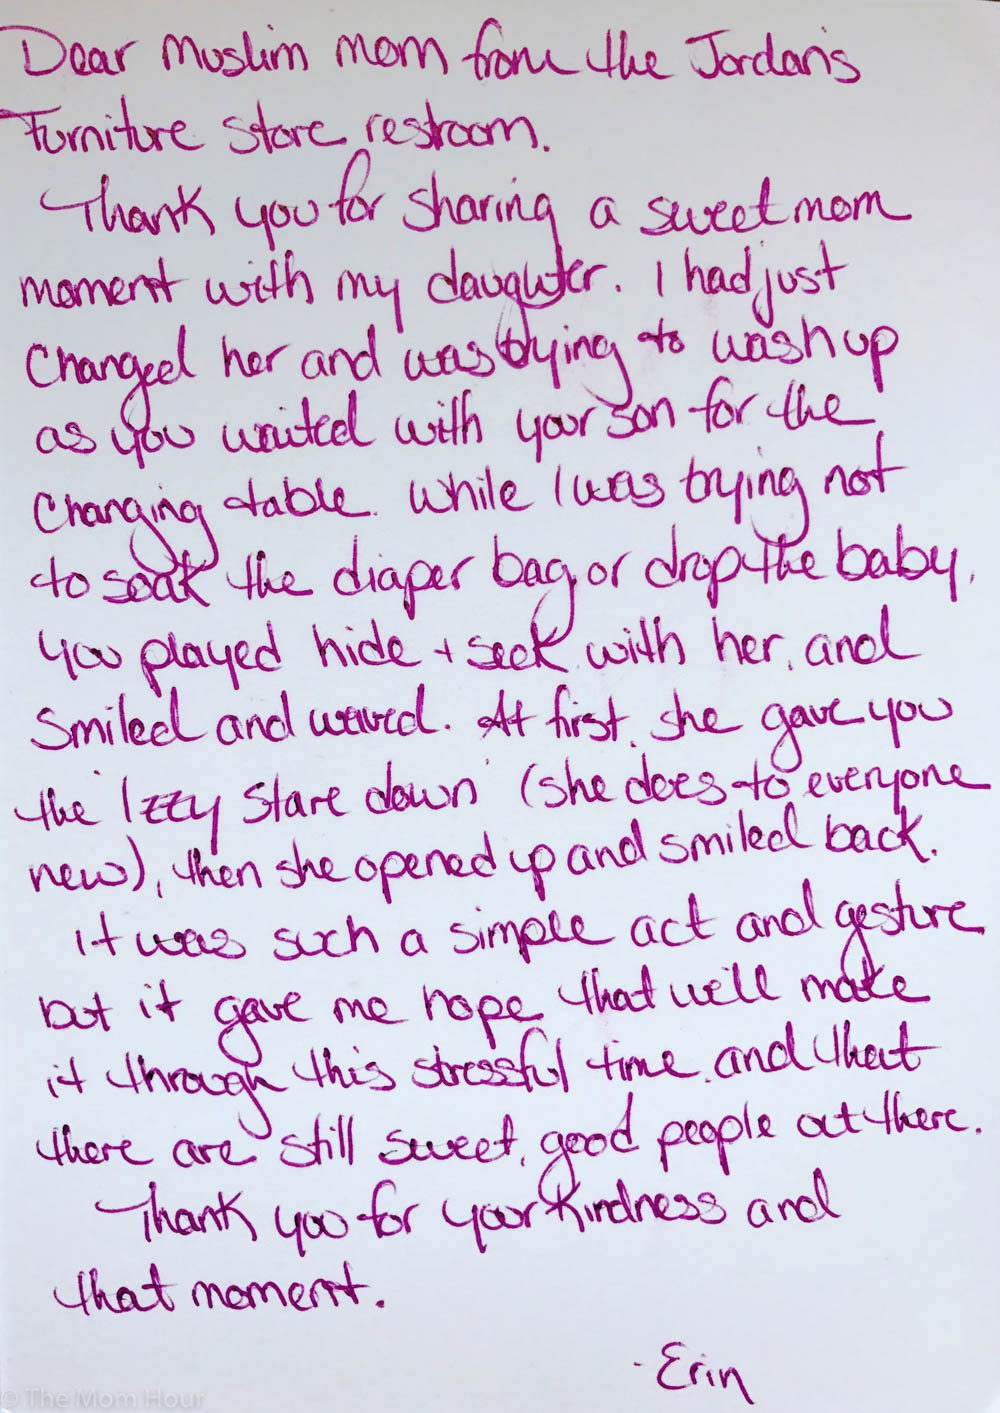 Dear Muslim mom from the Jordan's
Furniture store restroom.
Thank you for sharing a sweet mom
moment with my daughter. I had just
changed her and was trying to wash up
as you waited with your son for the
changing table. While I was trying not
to soak the diaper bag or drop the baby,
you played hide + seek with her, and
smiled and waved. At first, she gave you
the 'Izzy stare down' (she does to everyone
new), then she opened up and smiled back.
it was such a simple act and gesture
but it gave me hope that we'll make
it through this stressful time, and that
there are still sweet, good people out there.
Thank you for your kindness and
that moment.
- Erin
© The Mom Hour